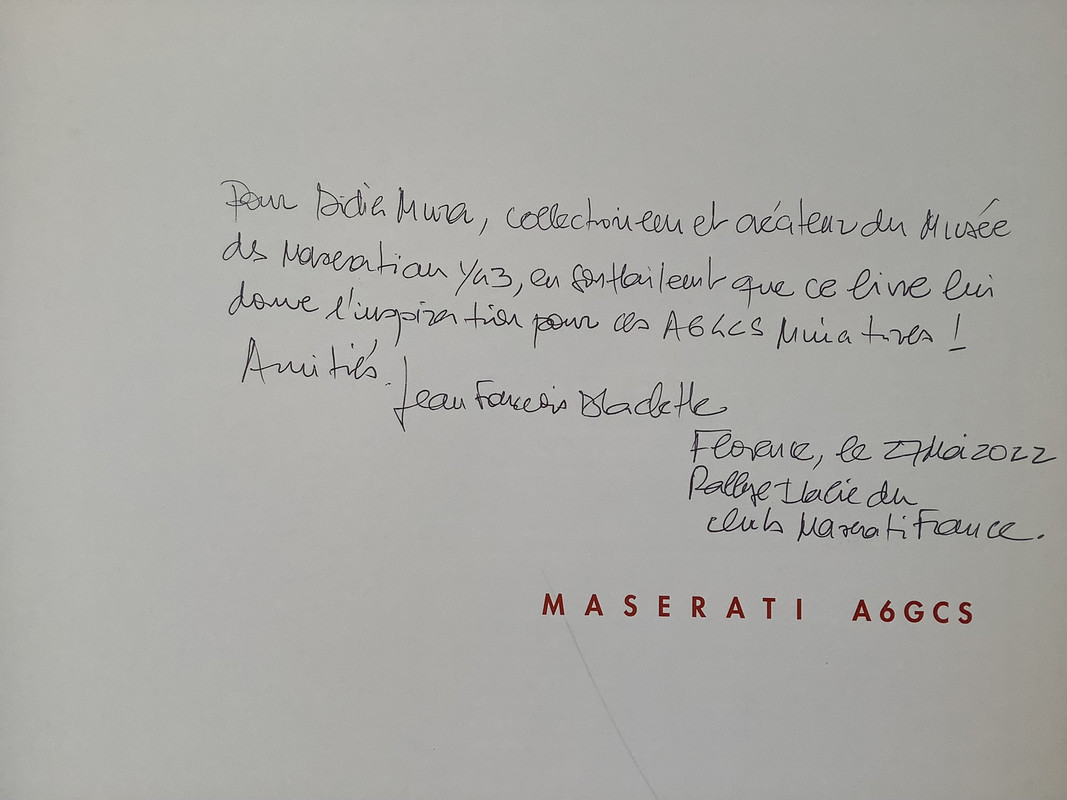 Pour Didier Mura, collectionneur et créateur du Musée
des Maserati au 1/43, en souhaitant que ce livre lui
donne l'inspiration pour ces A6GCS Miniatures !
Amitiés. Jean François Blachette
Florence, le 27 Mai 2022
Rallye Italie du
club Maserati France.
MASERATI A6GCS